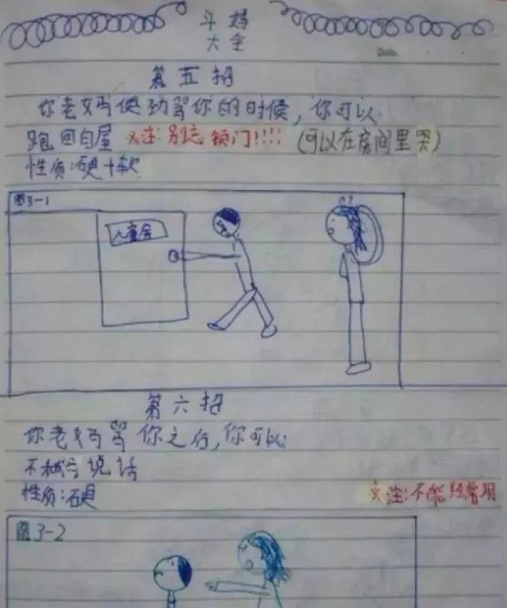 斗妈
大全
第五招
你老妈使劲骂你的时候，你可以
跑回自屋 ※注:别忘锁门!!!! (可以在房间里哭)
性质:硬+软
图3-1
儿童房
第六招
你老妈骂你之后,你可以
不和她说话
性质:硬
※注:不能经常用
图3-2